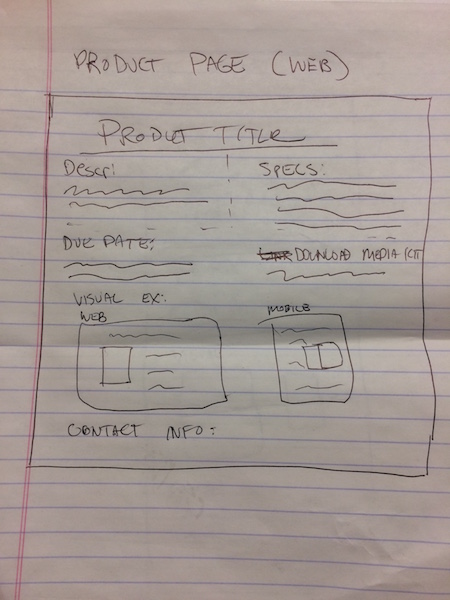 PRODUCT PAGE (WEB)
PRODUCT TITLE
DESCR:
SPECS:
DUE DATE:
DOWNLOAD MEDIA KIT
VISUAL EX:
WEB
MOBILE
CONTACT INFO: